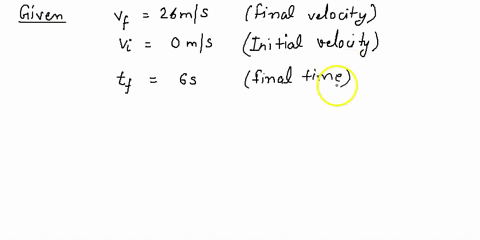 Given v_f = 26m/s (final velocity)
v_i = 0 m/s (Initial velocity)
t_f = 6s (final time)